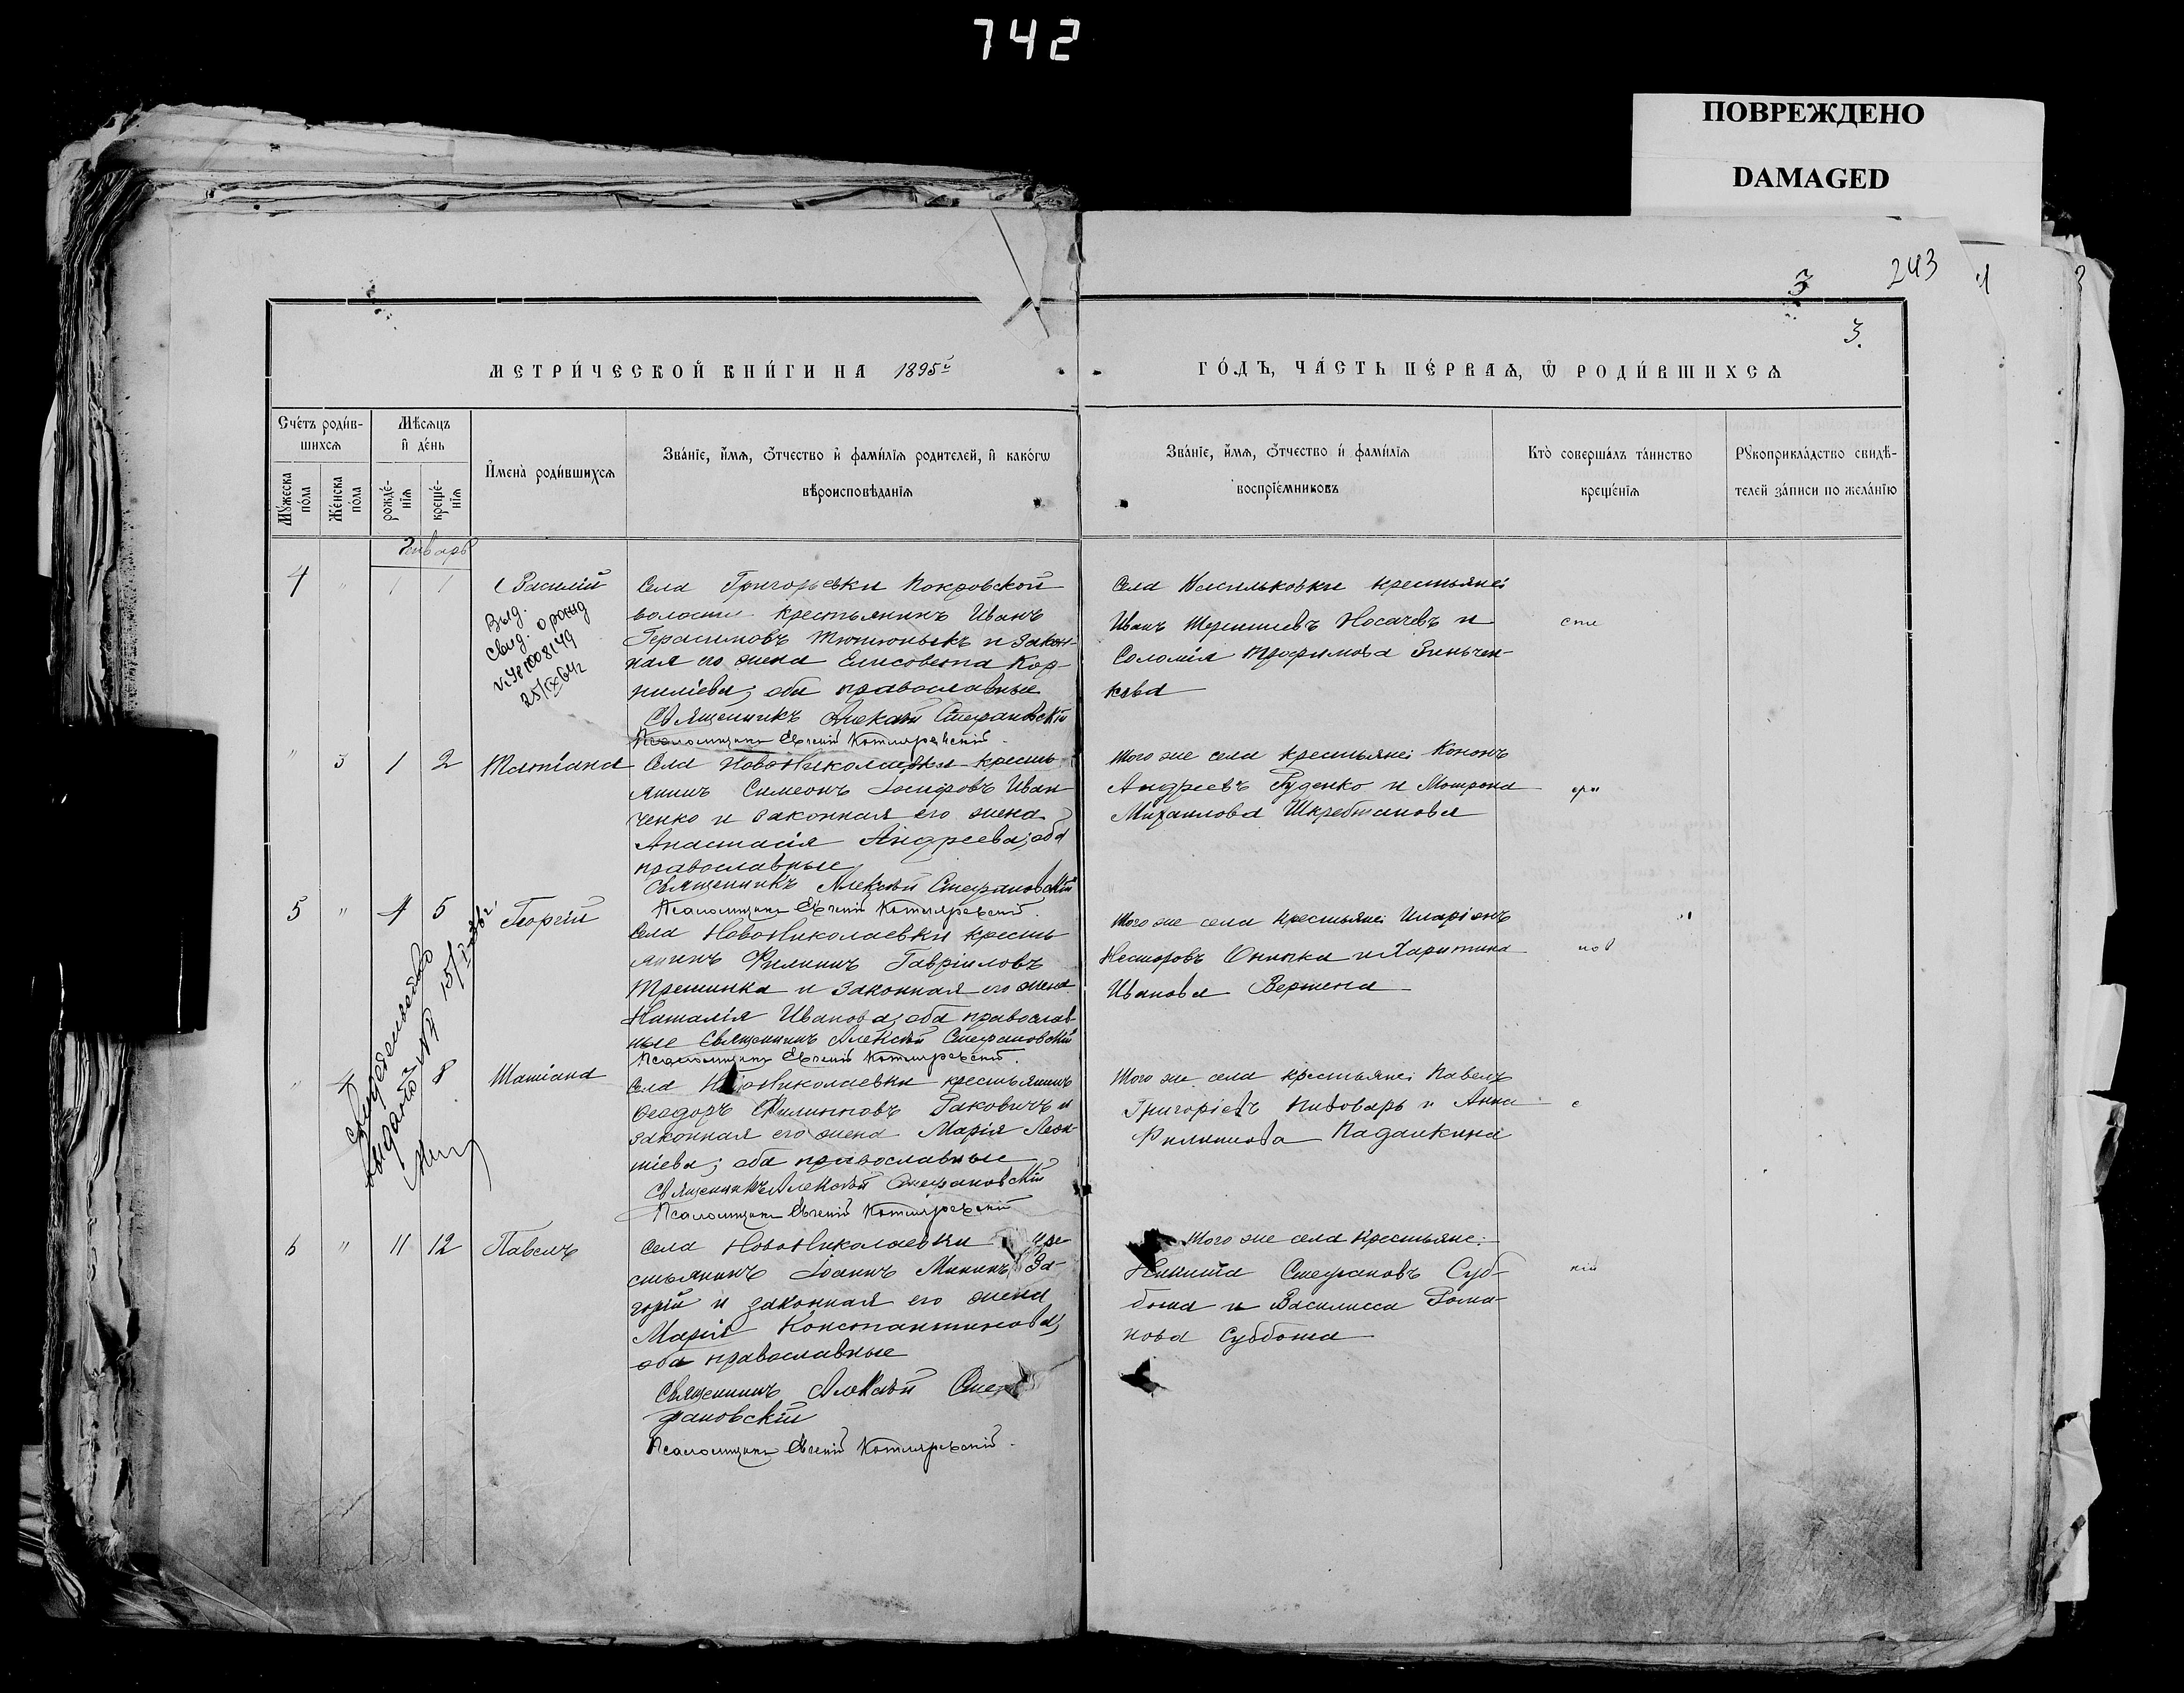 742
ПОВРЕЖДЕНО
DAMAGED
243
3
3.
МЕТРИ́ЧЕСКОЙ КНИ́ГИ НА 1895й
ГО́ДЪ, ЧА́СТЬ ПЕ́РВАѦ, Ѡ҆ РОДИ́ВШИХСѦ
Сче́тъ роди́в-
шихсѧ
Мꙋ́жеска по́ла
Же́нска по́ла
Мѣ́сѧцъ
и҆ де́нь
рожде́-
нїѧ
креще́-
нїѧ
И҆мена̀ роди́вшихсѧ
Зва́нїе, и҆́мѧ, ѻ҆́тчество и҆ фами́лїѧ родителей, и҆ како́гѡ
вѣроисповѣ́данїѧ
Зва́нїе, и҆́мѧ, ѻ҆́тчество и҆ фами́лїѧ
воспрїе́мниковъ
Кто̀ соверша́лъ та́инство
креще́нїѧ
Рꙋкоприкла́дство свидѣ́-
телей за́писи по жела́нїю
Январь
4 " 1 1 Василій
Выд.
свид. о рожд
25/IX 64г
Села Григорьевки Покровской
волости крестьянинъ Иванъ
Герасимовъ Тютюнькъ и закон-
ная его жена Елисовета Кор-
ниліева; оба православные
Священникъ Алексѣй Стефановскій
Псаломщикъ Евгеній Котляревскій.
Села Васильковки крестьяне:
Иванъ Носачевъ и
Соломія Трофимова Зиньчен-
кова
" 3 1 2 Татіана
Села НовоНиколаевки кресть
янинъ Симеонъ Іосифовъ Иван
ченко и законная его жена
Анастасія Андреева; оба
православные
Священникъ Алексѣй Стефановскій
Псаломщикъ Евгеній Котляревскій.
Того же села крестьяне: Кононъ
Андреевъ Руденко и Мотрона
Михаилова Шкребтанова
5 " 4 5 Георгій
свидетельство
выдано
Села НовоНиколаевки кресть
янинъ Филиппъ Гавріиловъ
Трешинка и законная его жена
Наталія Иванова; оба православ-
ные Священникъ Алексѣй Стефановскій
Псаломщикъ Евгеній Котляревскій.
Того же села крестьяне: Иларіонъ
Несторовъ и Харитина
Иванова Вертена
" 4 8 Татіана
Села НовоНиколаевки крестьянинъ
Феодоръ Филипповъ Раковичъ и
законная его жена Марія Леон-
тіева; оба православные
Священникъ Алексѣй Стефановскій
Псаломщикъ Евгеній Котляревскій
Того же села крестьяне: Павелъ
Григоріевъ Пивоваръ и Анна
Филиппова Падалкина
6 " 11 12 Павелъ
Села НовоНиколаевки кре
стьянинъ Іоаннъ Мининъ За-
горій и законная его жена
Марія Константинова;
оба православные
Священникъ Алексѣй Сте
фановскій
Псаломщикъ Евгеній Котляревскій.
Того же села крестьяне:
Никита Стефановъ Суб-
бота и Василисса Рома-
нова Суббота